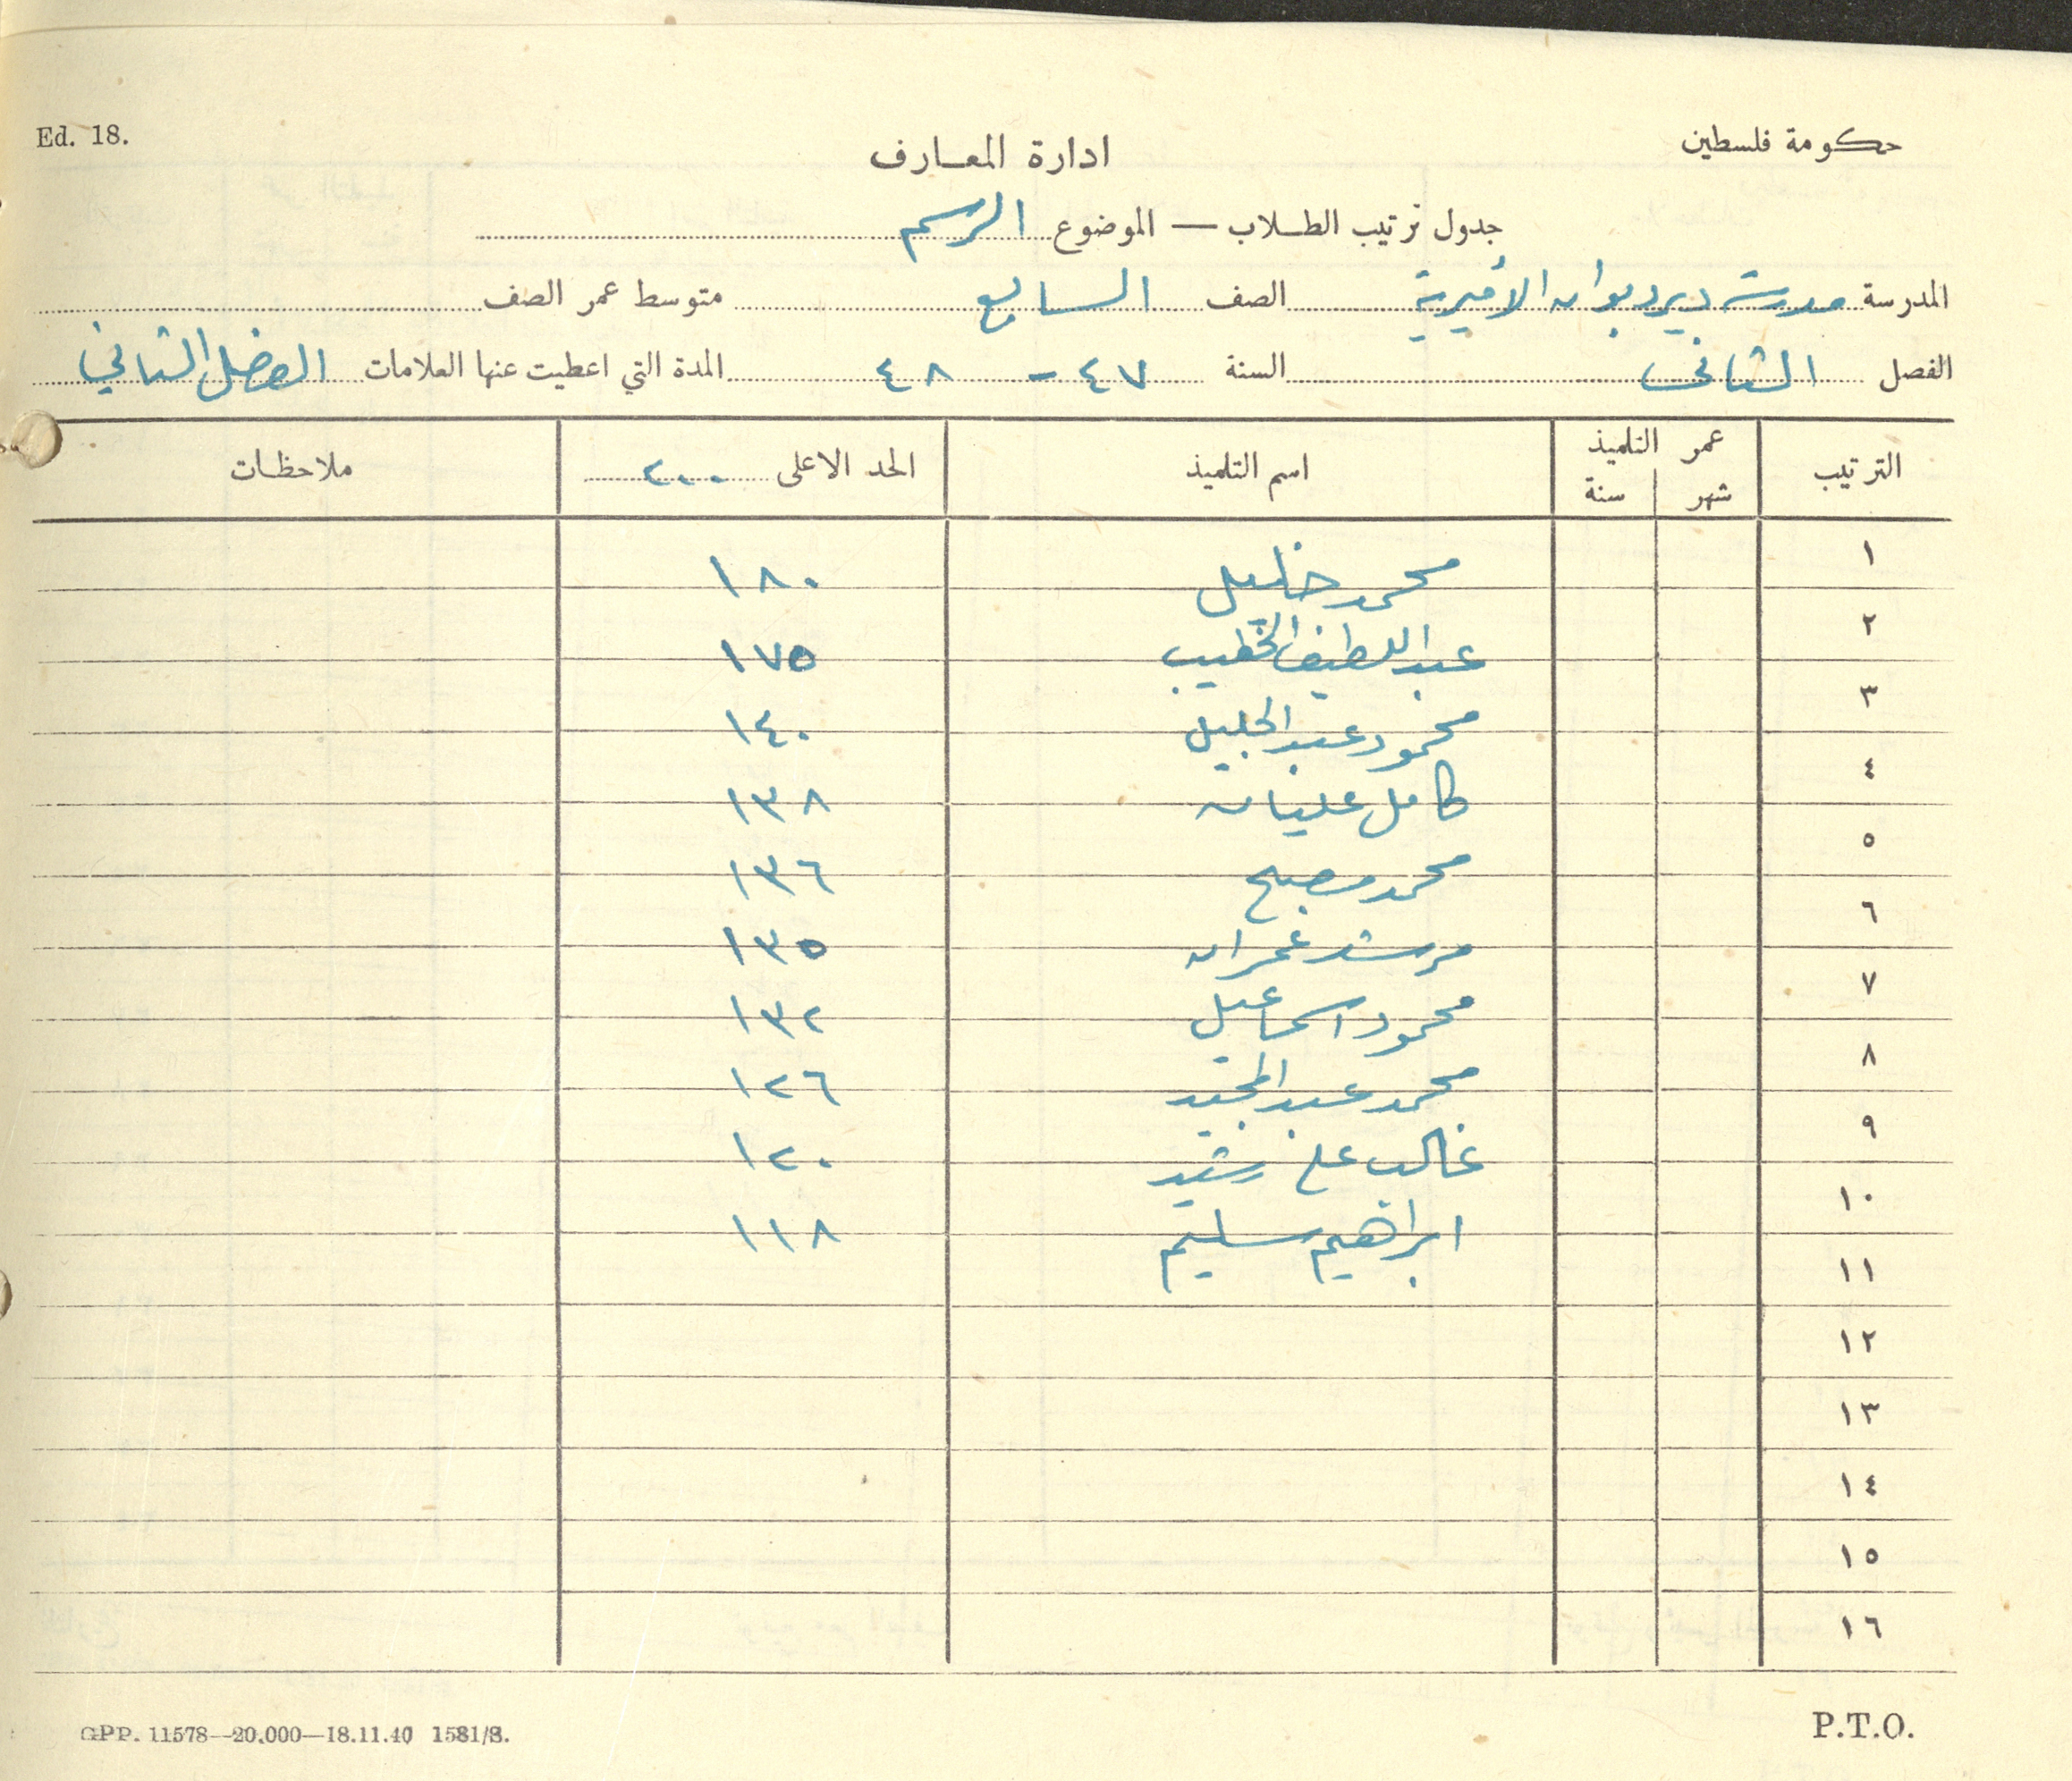 Ed. 18.
حكومة فلسطين
ادارة المعارف
جدول ترتيب الطلاب — الموضوع الرسم
المدرسة مدرسة ديردبوان الأميرية الصف السابع متوسط عمر الصف
الفصل الثاني السنة ٤٧ - ٤٨ المدة التي اعطيت عنها العلامات الفصل الثاني
الترتيب عمر التلميذ شهر سنة اسم التلميذ الحد الاعلى ٢٠٠ ملاحظات
١ محمد خليل ١٨٠
٢ عبد اللطيف الخطيب ١٧٥
٣ محمود عبد الجليل ١٤٠
٤ كامل عليان ١٣٨
٥ محمد مصبح ١٣٦
٦ مرشد عمران ١٣٥
٧ محمود اسماعيل ١٣٢
٨ محمد عبد المجيد ١٢٦
٩ غالب علي رشيد ١٢٠
١٠ ابراهيم سليم ١١٨
١١
١٢
١٣
١٤
١٥
١٦
GPP. 11578—20.000—18.11.40 1581/3.
P.T.O.